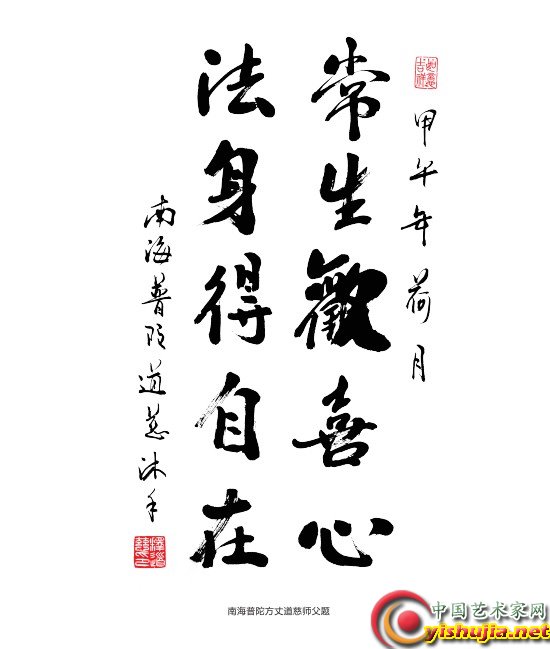 甲午年荷月
常生歡喜心
法身得自在
南海普陀道慈沐手
南海普陀方丈道慈师父题
中国艺术家网
yishujia.net